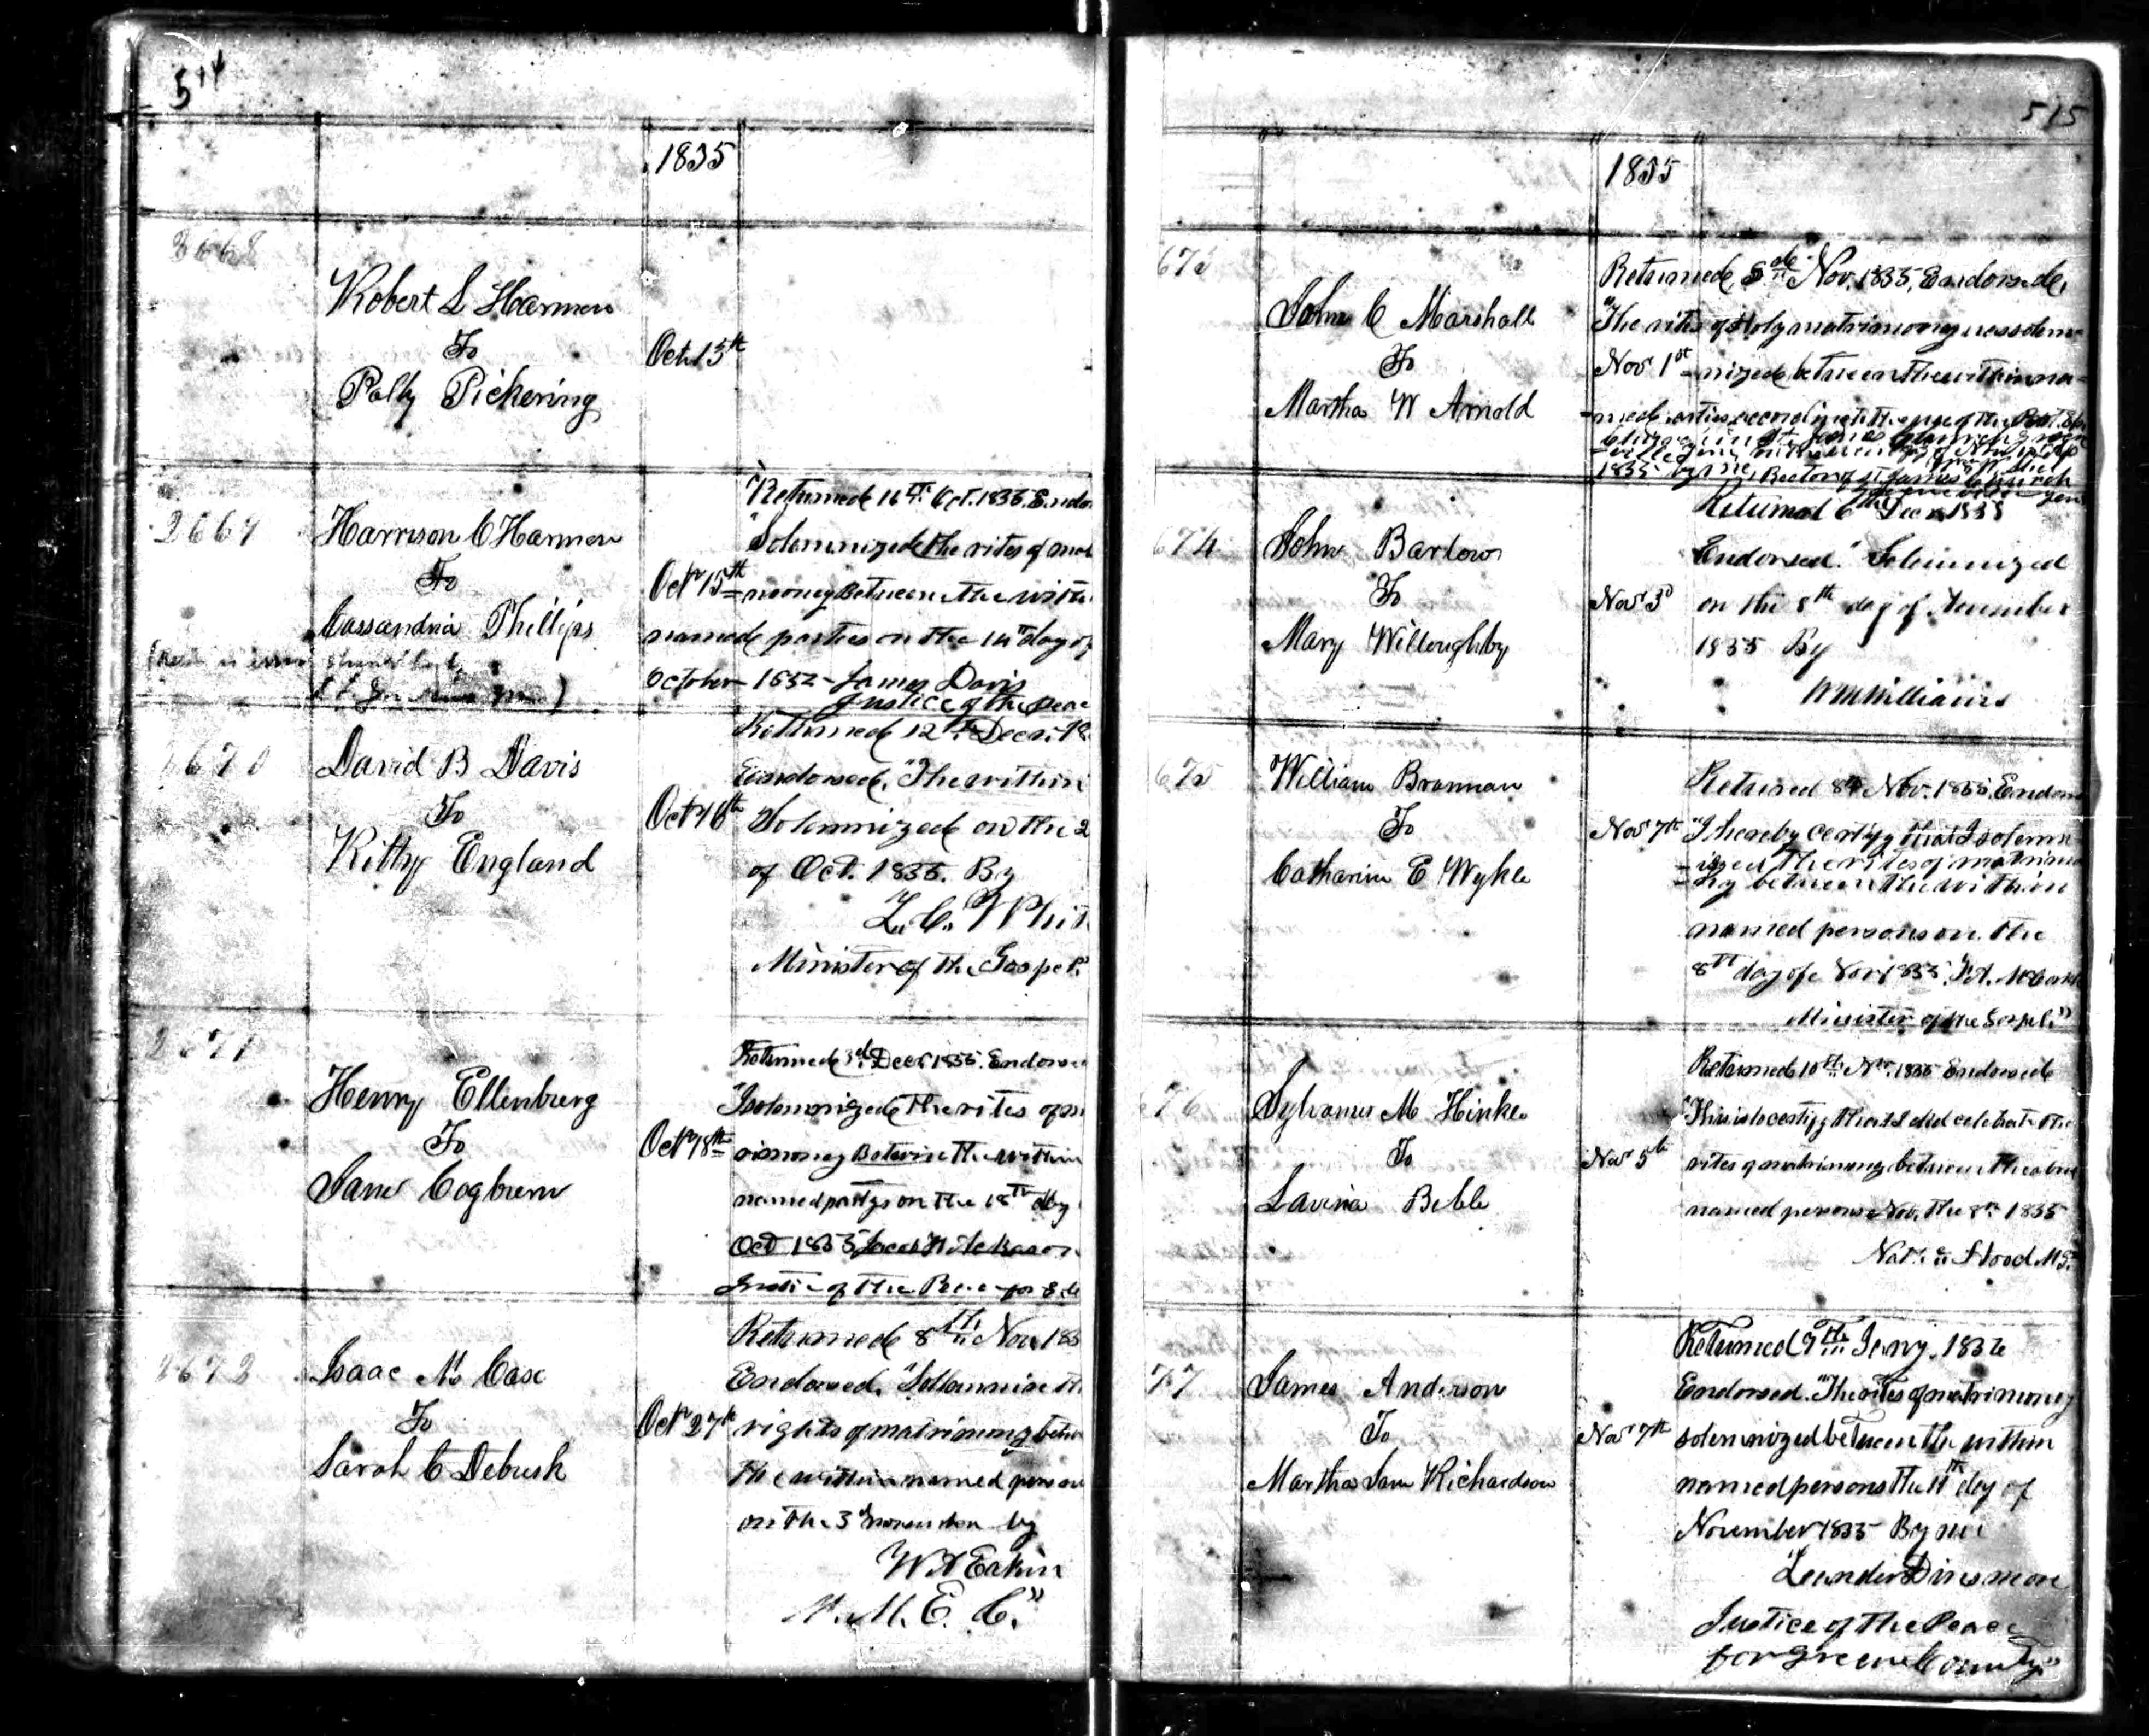 514
1835
2668
Robert L Harmon
To
Polly Pickering
Oct 15th
2669
Harrison C Harmon
To
Cassandria Phillips
Oct 15th
Returned 16th Oct. 1835. Endo
"Solemnized the rites of mat
mony Between the withi
named parties on the 14th day of
October 1832 - James Davis
Justice of the peac
2670
David B Davis
To
Kitty England
Oct 16th
Returned 12th Decr. 18
Endorsed, "The within
Solemnized on the 2
of Oct. 1835. By
Minister of the Gospel."
2671
Henry Ellenburg
To
Jane Cogburn
Oct 18th
Returned 3d Decr 1835. Endorse
"I solemnized the rites of m
rimony Betwixt the within
named partys on the 18th day
Oct 1835
Justice of the Peace for
2672
Isaac N. Case
To
Sarah C Debusk
Oct 27th
Returned 8th Nov 183
Endorsed, "Sollemnise th
rights of matrimony betw
the within named person
on the 3d November by
W A Eakin
M. E. C."
515
1835
John C Marshall
To
Martha W Arnold
Nov 1st
Returned Nov. 1835, Endorsed,
"The rites of Holy matrimony was solem-
nized between the within na-
med parties according to the usage of the
church in St. James Church
1835 by me, Rector of St James Church
674
John Barlow
To
Mary Willoughby
Nov 3d
Returned 6th Dec 1835
Endorsed. "Solemnized
on the 8th day of November
1835 By
Wm Williams
675
William Brannan
To
Catharine E Wykle
Nov 7th
Returned 8th Nov. 1835, Endors
"I hereby certify that I solemn
-ized the rites of matrimo
-ny between the within
named persons on the
8th day of Nov 1835.
Minister of the Gospel."
676
Sylvanus M Hinkle
To
Lavina Bible
Nov 5th
Returned 10th Nov. 1835 Endorsed
"This is to certify that I did celebrate the
rites of matrimony between the above
named persons Nov. the 8th 1835
Flood
77
James Anderson
To
Martha Jane Richardson
Nov 7th
Returned 9th Jany. 1836
Endorsed. "The rites of matrimony
solemnized between the within
named persons the 11th day of
November 1835 By me
Leander Dinsmore
Justice of the Peace
for Greene County"